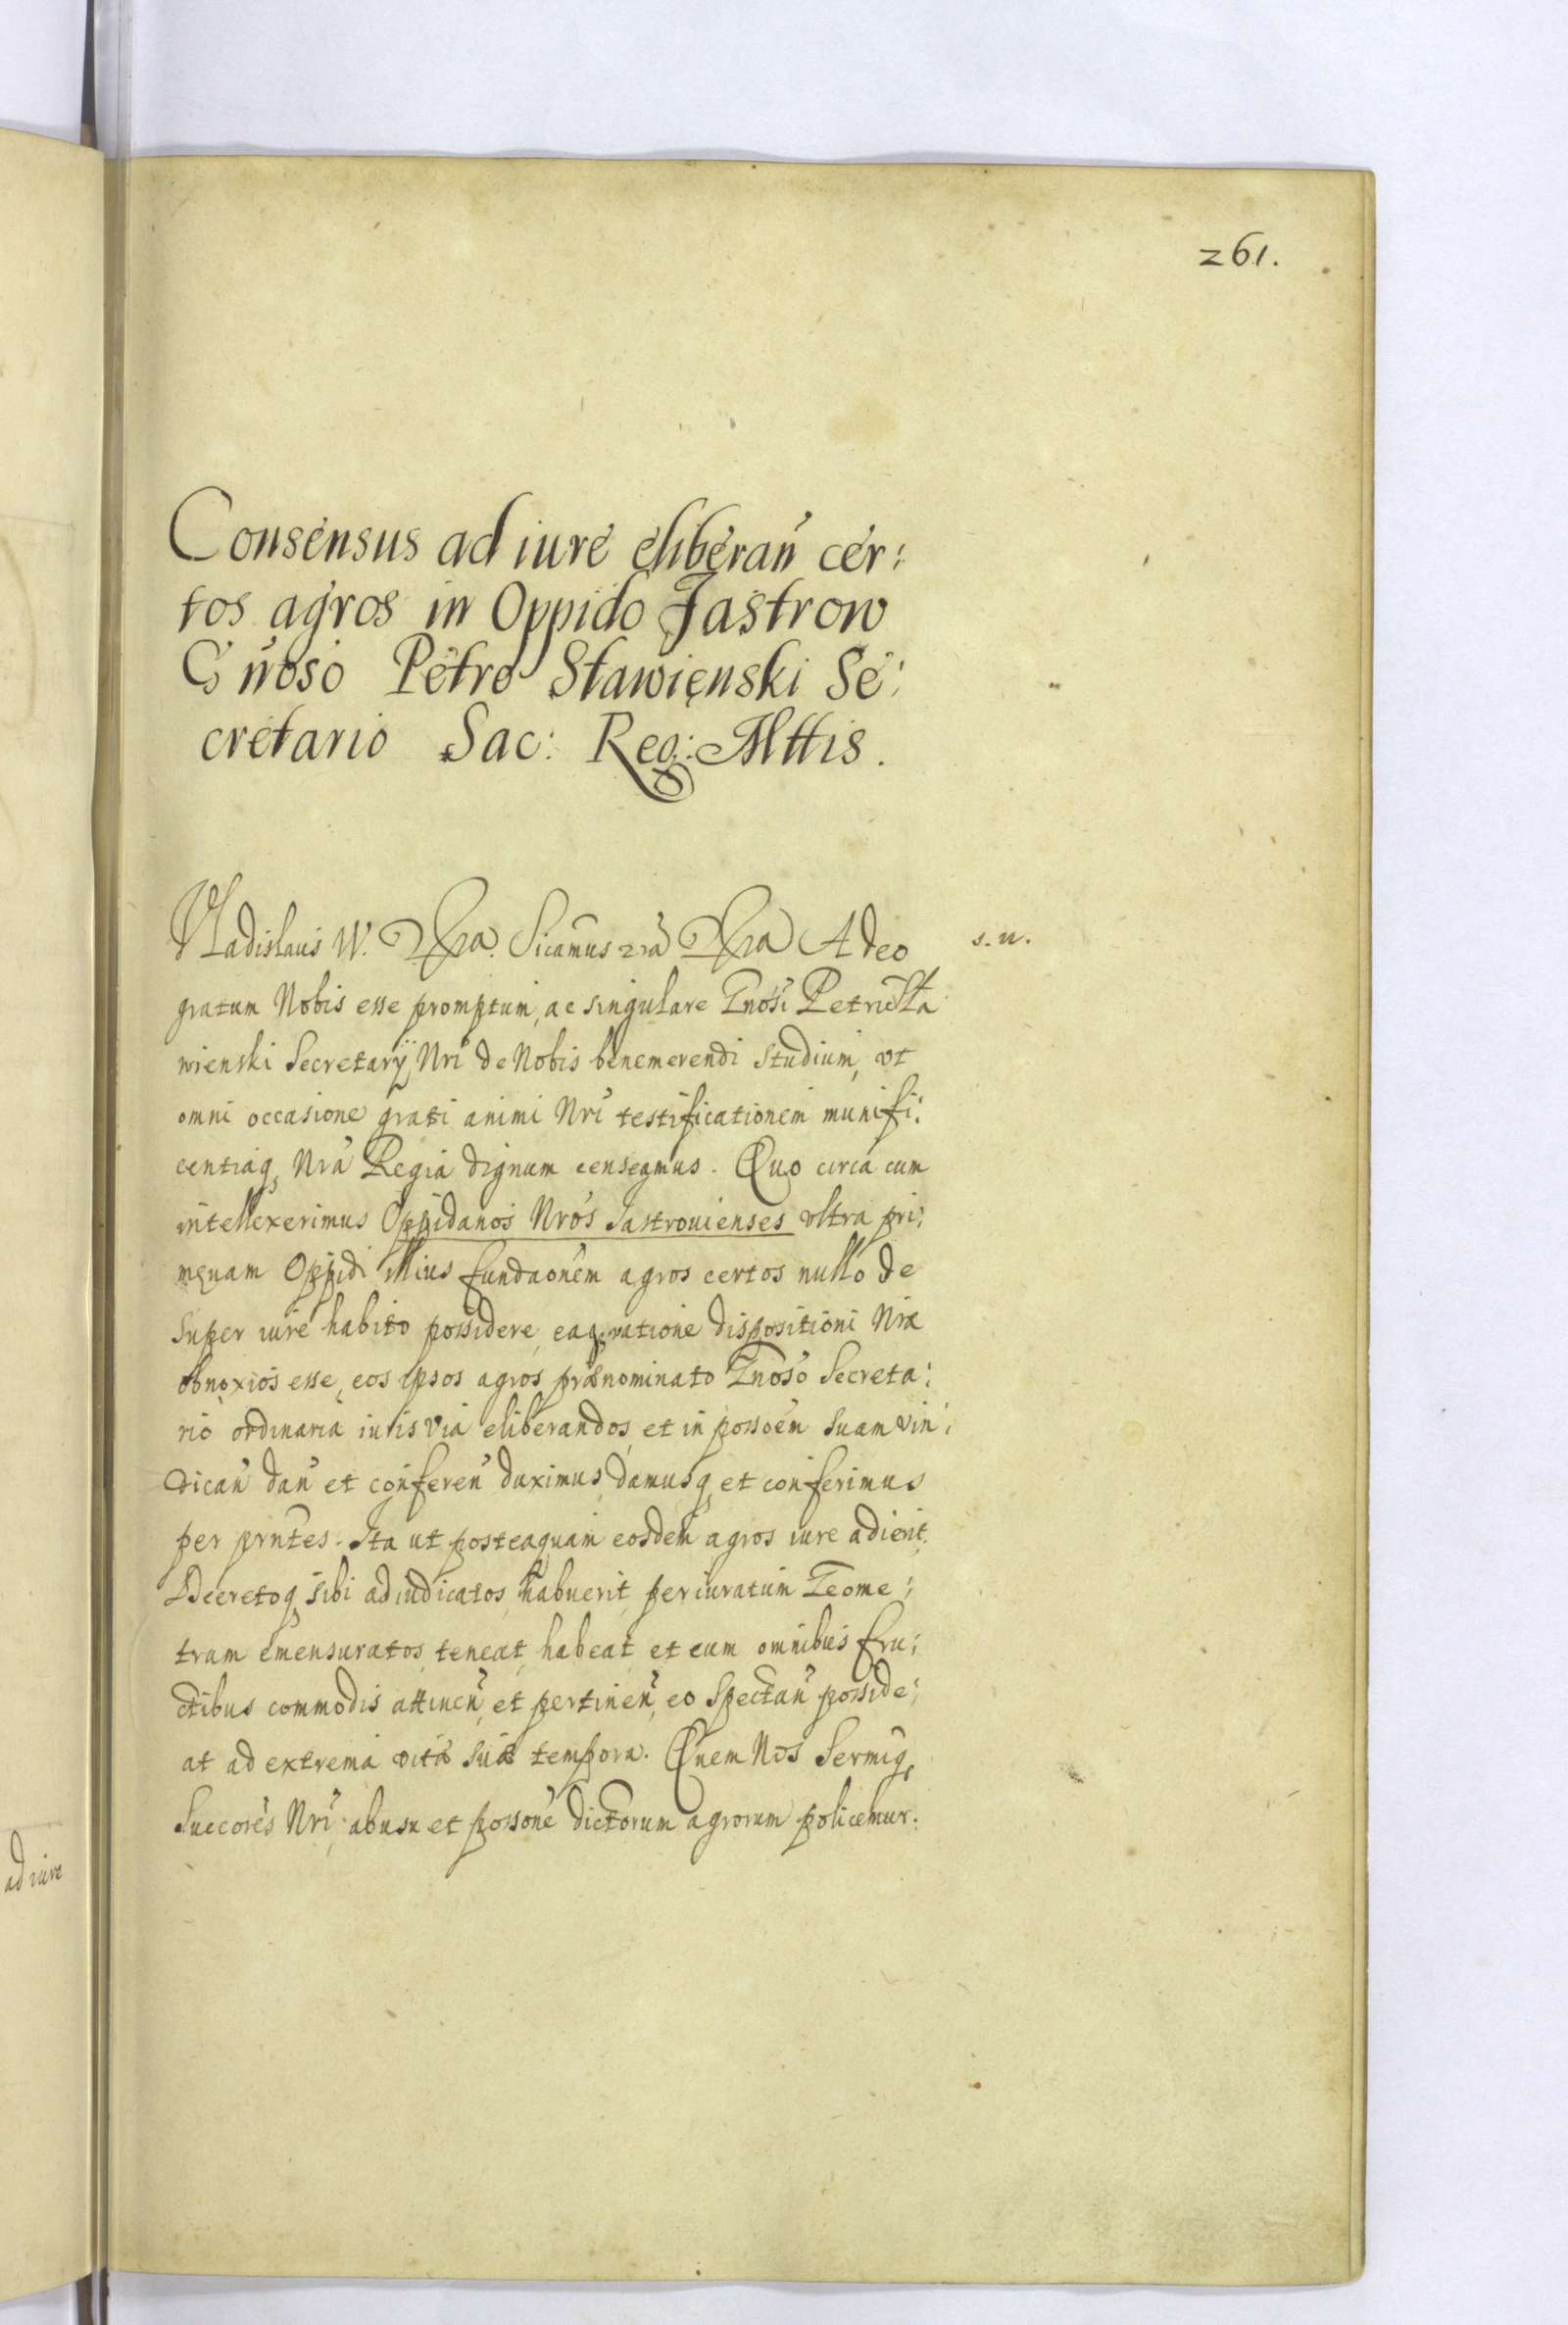 261.
Consensus ad iure eliberan̄ cer:
tos agros in Oppido Jastrow
Gn̄oso Petro Stawięnski Se:
cretario Sac: Reg: Mttis.
Vladislaus IV. Significamus Adeo
s. n.
gratum Nobis esse promptum, ac singulare Gnosi Petri Sta
wienski Secretarÿ Nri de Nobis benemerendi studium, vt
omni occasione grati animi Nri testificationem munifi:
centiaq, Nra Regia dignum censeamus. Quo circa cum
intellexerimus Oppidanos Nros Jastrouienses vltra pri:
mæuam Oppidi illius fundaonem agros certos nullo de
super iure habito possidere, eaq, ratione dispositioni Nræ
obnoxios esse, eos ipsos agros prænominato Gnoso Secreta:
rio ordinaria iuris via eliberandos, et in possoem suam vin:
dican̄ dan̄ et conferen̄ duximus, damusq, et conferimus
per prntes. Ita ut posteaquam eosdem agros iure adierit
Decretoq, sibi adiudicatos habuerit, per iuratum Geome:
tram emensuratos, teneat, habeat, et cum omnibus fru:
ctibus commodis attinen̄, et pertinen̄, eo spectan̄ posside:
at ad extrema vitæ suæ tempora. Quem Nos Sermiq,
Succores Nri, ab usu et possone dictorum agrorum policemur.
ad iure